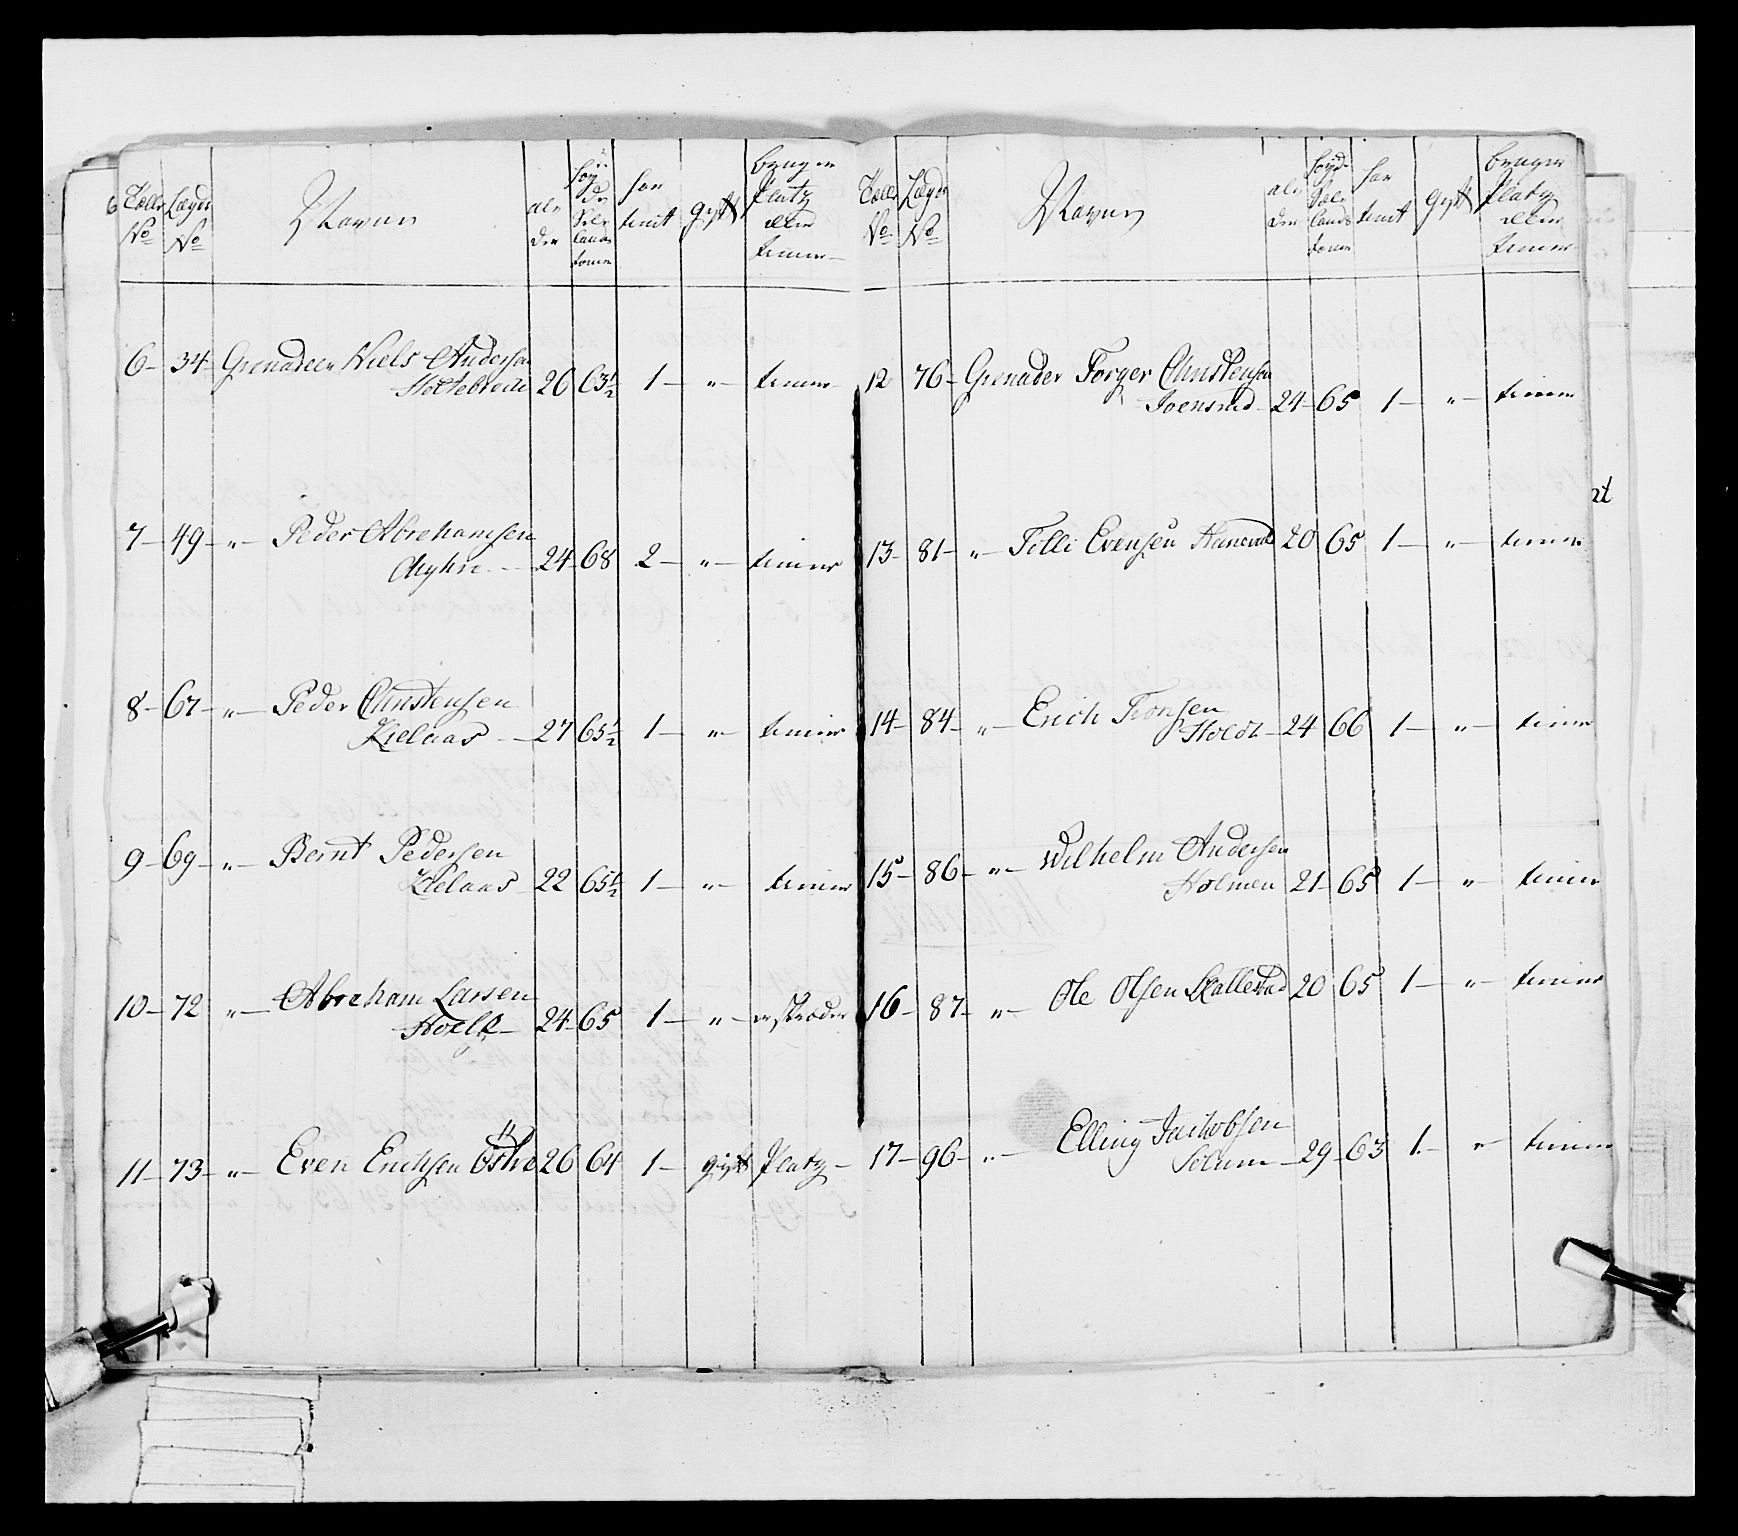 No
No
Navn
al
der
har
tient
gift
bruger
Platz
eller
tiener
6 — 34 — Grenadeer Niels Andersen
Holtebrede 26 63½ 1 — „ — tiener
7 — 49 — „ — Peder Abrehamsen
24 — 68 2 — „ — tiener
8 — 67 — „ — Peder Christensen
Kielaas — 27 65½ 1 — „ — tiener
9 — 69 — „ — Bernt Pedersen
Kielaas — 22 65½ 1 — „ — tiener
10 — 72 „ — Abreham Larsen
24 — 65 1 — „ —
11 — 73 — „ — Even Erichsen 26 64 1 — gift Platz —
No
No
Navn
al
der
har
tient
gift
bruger
Platz
eller
tiener
12 76 — Grenader Torger Christensen
24 — 65 1 — „ — tiener
13 — 81 — „ — Tolli Evensen 20 65 1 — „ — tiener
14 — 84 — „ — Erich
Holdt — 24 66 1 — „ — tiener
15 — 86 — „ — Wilhelm Andersen
Holmen 21 — 65 1 — „ — tiener
16 — 87 — „ — Ole Olsen Skallestad 20 65 1 — „ — tiener
17 — 96 — „ — Elling Jachobsen
Solum — 29 — 63 1 — „ — tiener